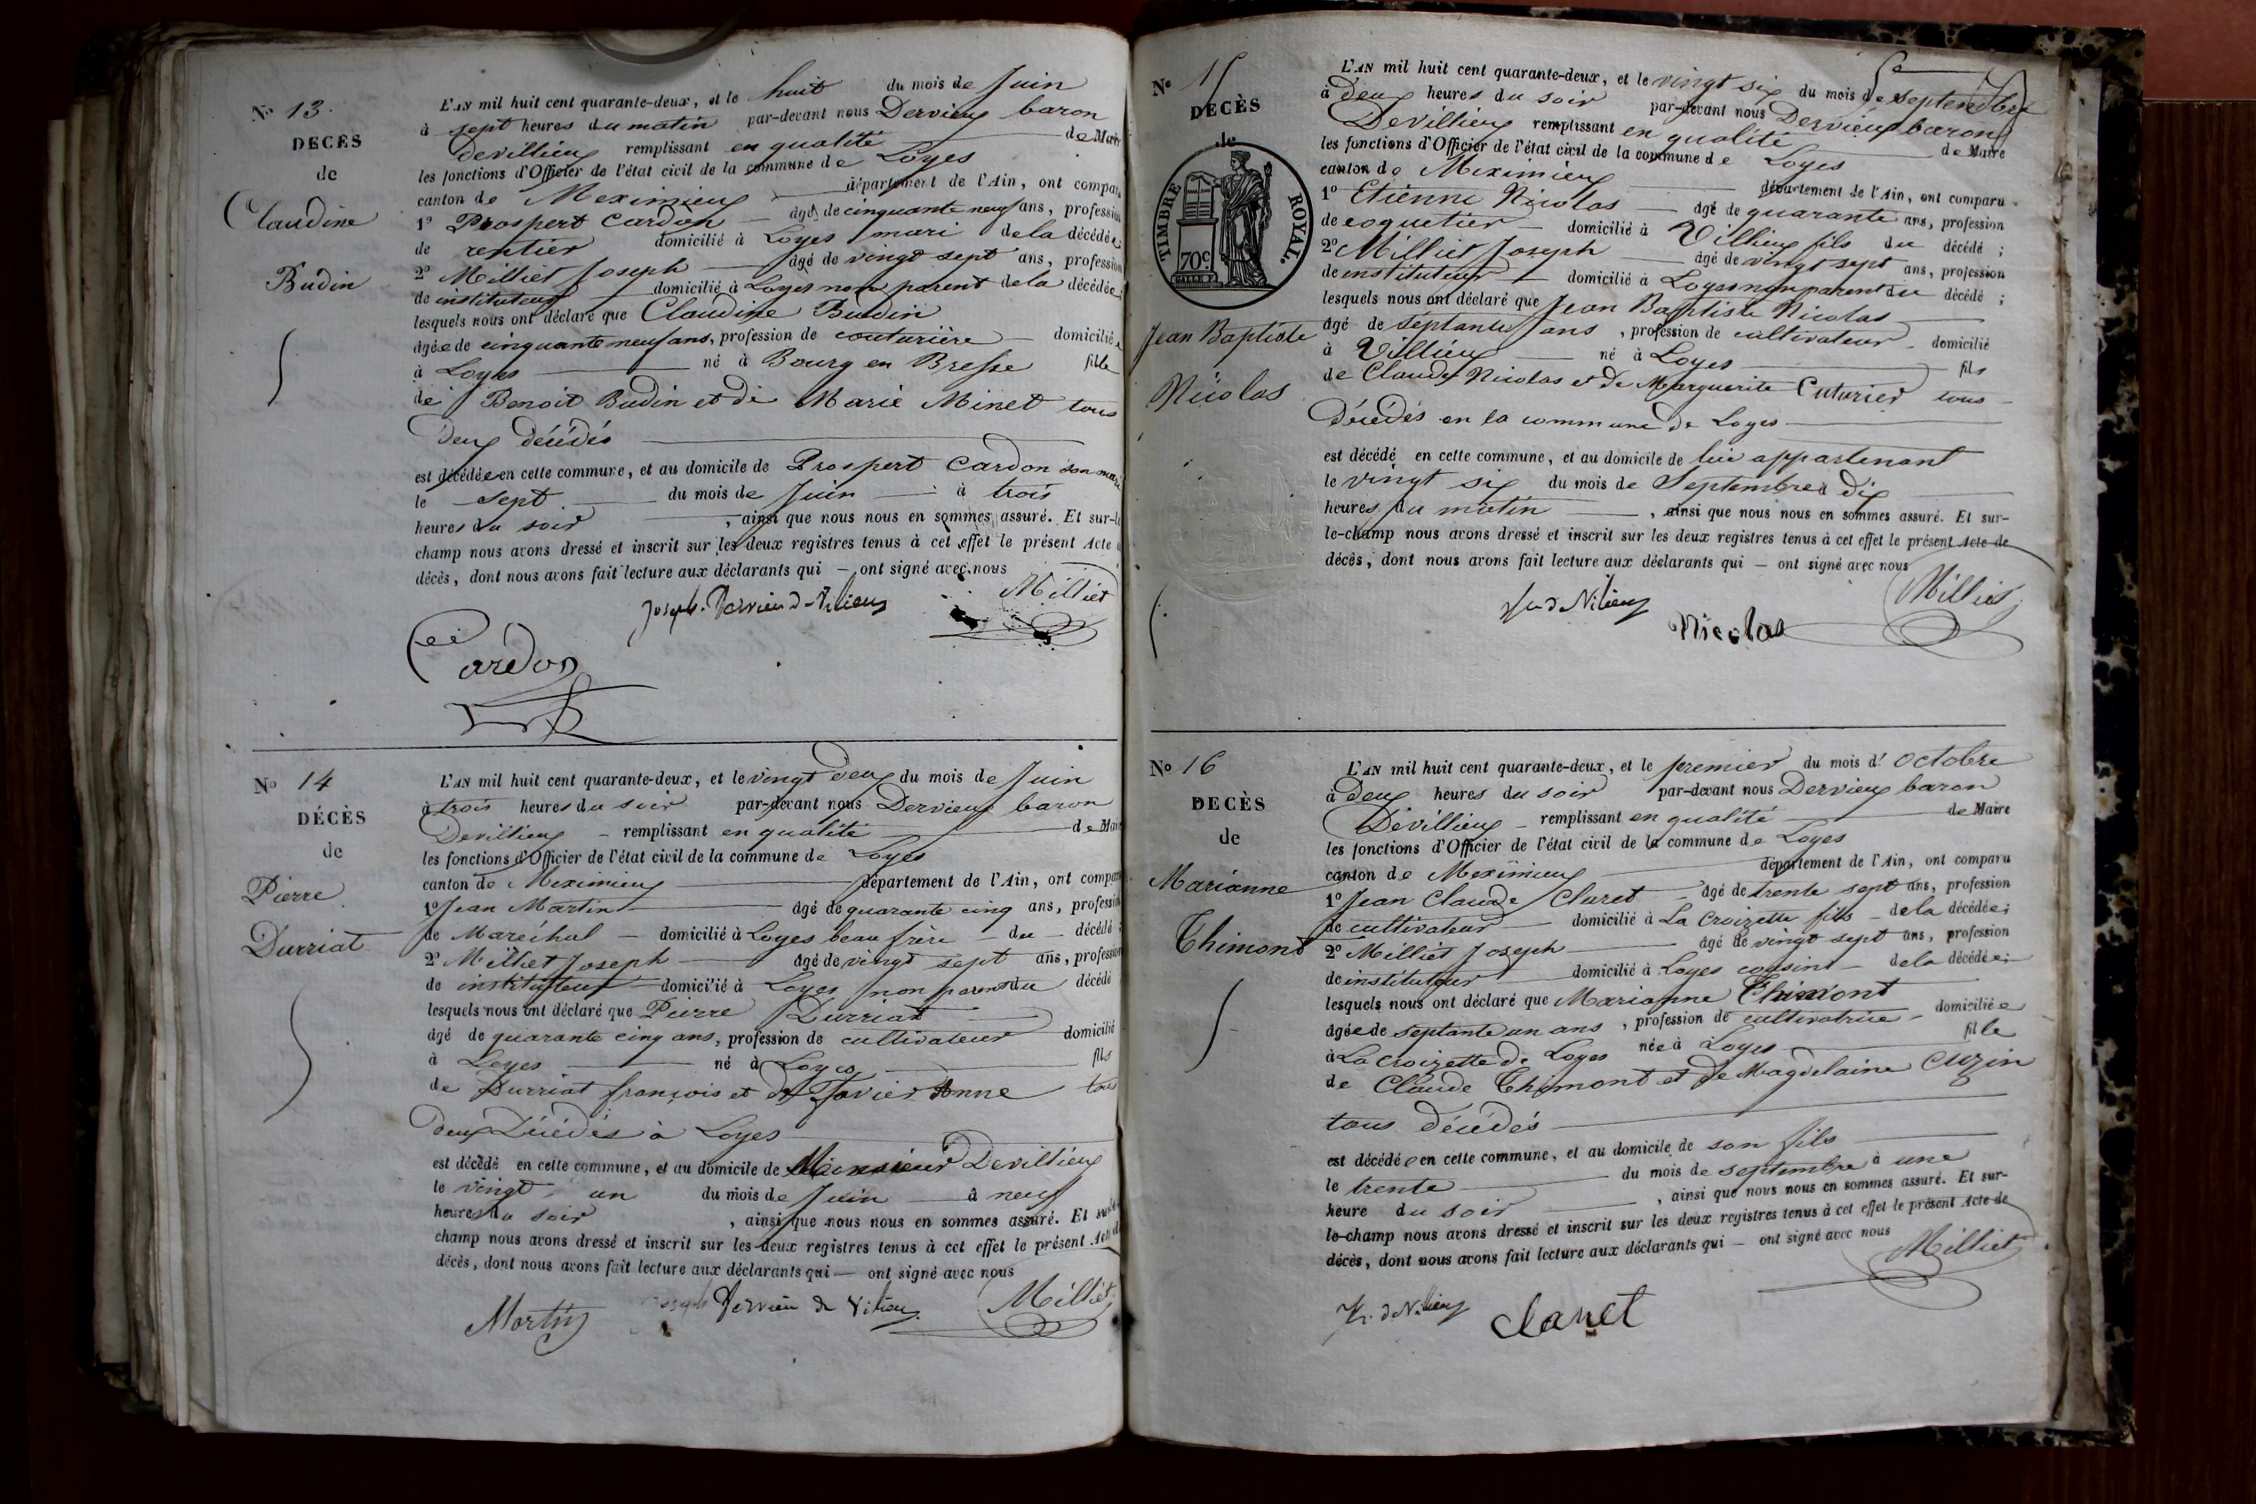 No 13.
DÉCÈS
de
Claudine
Budin
L'AN mil huit cent quarante-deux, et le huit du mois de Juin
à sept heures du matin par-devant nous Dervieux baron
devillieux remplissant en qualité de Maire
les fonctions d'Officier de l'état civil de la commune de Loyes
canton de Meximieux département de l'Ain, ont comparu
1º Prospert Cardon âgé de cinquante neuf ans, profession
de rentier domicilié à Loyes mari de la décédée;
2º Milliet Joseph âgé de vingt sept ans, profession
de instituteur domicilié à Loyes non parent de la décédée;
lesquels nous ont déclaré que Claudine Budin
âgée de cinquante neuf ans, profession de couturière domiciliée
à Loyes né à Bourg en Bresse fille
de Benoit Budin et de Marie Minet tous
deux décédés
est décédée en cette commune, et au domicile de Prospert Cardon son mari
le sept du mois de Juin à trois
heures du soir, ainsi que nous nous en sommes assuré. Et sur-le
champ nous avons dressé et inscrit sur les deux registres tenus à cet effet le présent Acte de
décès, dont nous avons fait lecture aux déclarants qui — ont signé avec nous
Joseph Dervieu d-Vilieux Milliet
Cardon
No 14
DÉCÈS
de
Pierre
Durriat
L'AN mil huit cent quarante-deux, et le vingt deux du mois de Juin
à trois heures du soir par-devant nous Dervieux baron
Devillieux remplissant en qualité de Maire
les fonctions d'Officier de l'état civil de la commune de Loyes
canton de Meximieux département de l'Ain, ont comparu
1º Jean Martin âgé de quarante cinq ans, profession
de Maréchal domicilié à Loyes beau frère du décédé;
2º Milliet Joseph âgé de vingt sept ans, profession
de instituteur domicilié à Loyes non parent du décédé
lesquels nous ont déclaré que Pierre Durriat
âgé de quarante cinq ans, profession de cultivateur domicilié
à Loyes né à Loyes fils
de Durriat françois et de Favier Anne tous
deux Décédés à Loyes
est décédé en cette commune, et au domicile de Monsieur Devillieux
le vingt un du mois de Juin à neuf
heures du soir, ainsi que nous nous en sommes assuré. Et sur-le
champ nous avons dressé et inscrit sur les deux registres tenus à cet effet le présent Acte de
décès, dont nous avons fait lecture aux déclarants qui — ont signé avec nous
Martin Joseph Dervieu de Vilieux Milliet
No 15
DÉCÈS
de
TIMBRE ROYAL.
70c
Jean Baptiste
Nicolas
L'AN mil huit cent quarante-deux, et le vingt six du mois de septembre
à deux heures du soir par-devant nous Dervieux baron
Devillieux remplissant en qualité de Maire
les fonctions d'Officier de l'état civil de la commune de Loyes
canton de Meximieux département de l'Ain, ont comparu
1º Etienne Nicolas âgé de quarante ans, profession
de coquetier domicilié à Villieux fils du décédé;
2º Milliet Joseph âgé de vingt sept ans, profession
de instituteur domicilié à Loyes non parent du décédé;
lesquels nous ont déclaré que Jean Baptiste Nicolas
âgé de septante ans, profession de cultivateur domicilié
à Villieux né à Loyes fils
de Claude Nicolas et de Marguerite Cuturier tous
décédés en la commune de Loyes
est décédé en cette commune, et au domicile de lui appartenant
le vingt six du mois de Septembre à dix
heures du matin, ainsi que nous nous en sommes assuré. Et sur-
le-champ nous avons dressé et inscrit sur les deux registres tenus à cet effet le présent Acte de
décès, dont nous avons fait lecture aux déclarants qui — ont signé avec nous
Nicolas Milliet
No 16
DÉCÈS
de
Marianne
Thimont
L'AN mil huit cent quarante-deux, et le premier du mois d'octobre
à deux heures du soir par-devant nous Dervieux baron
Devillieux remplissant en qualité de Maire
les fonctions d'Officier de l'état civil de la commune de Loyes
canton de Meximieux département de l'Ain, ont comparu
1º Jean Claude Claret âgé de trente sept ans, profession
de cultivateur domicilié à La Croizette fils de la décédée;
2º Milliet Joseph âgé de vingt sept ans, profession
de instituteur domicilié à Loyes cousin de la décédée;
lesquels nous ont déclaré que Marianne Thimont
âgée de septante un ans, profession de cultivatrice domiciliée
à La Croizette de Loyes née à Loyes fille
de Claude Thimont et de Magdelaine Cuzin
tous décédés
est décédée en cette commune, et au domicile de son fils
le trente du mois de septembre à une
heure du soir, ainsi que nous nous en sommes assuré. Et sur-
le-champ nous avons dressé et inscrit sur les deux registres tenus à cet effet le présent Acte de
décès, dont nous avons fait lecture aux déclarants qui — ont signé avec nous
claret Milliet